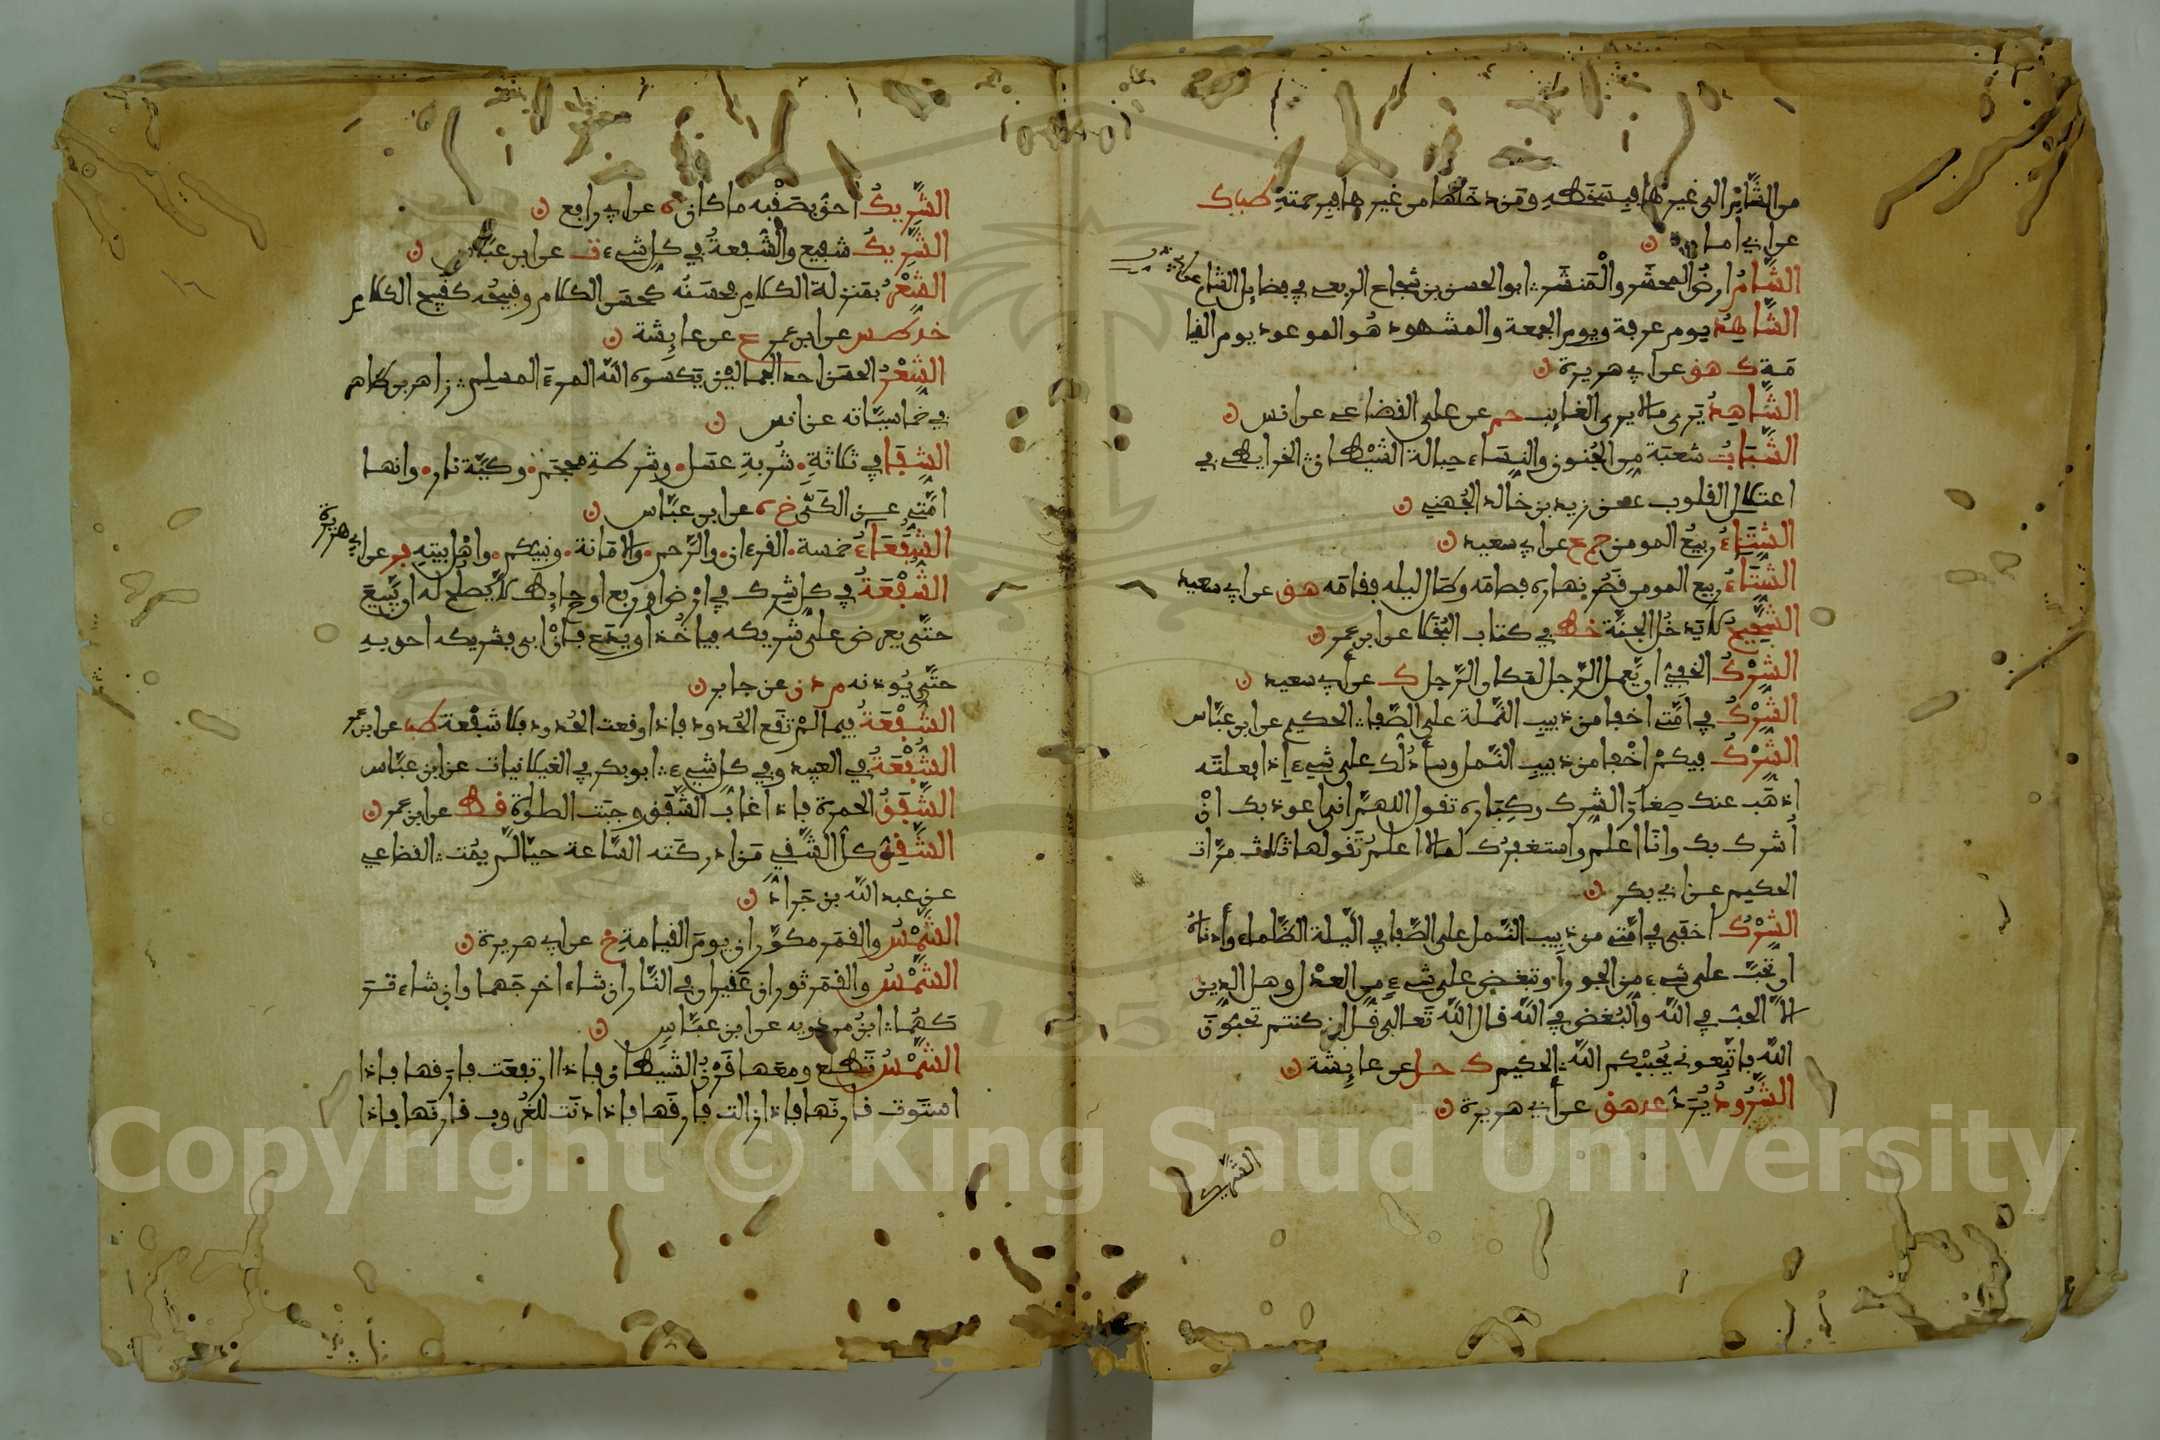 من الشَّام الى غيرها فبسخطه ومن دخلها من غيرها فبرحمته طب ك
عن ابي امامة ن
الشَّامُ ارضُ المحشَر والمَنشَر ابو الحسن بن شجاع الربعي في فضايل الشام عن
الشَّاهِدُ يوم عرفة ويوم الجمعة والمشهود هُو الموعود يوم القيا
مَة ك هق عن ابي هريرة ن
الشَّاهِدُ يَرى مالا يرى الغائب حم عن على القضاعي عن انس ن
الشَّبَابُ شعبَة من الجُنون والنِسَاء حبالة الشَّيْطان الخرايطي في
اعتلال القلوب عن زيد بن خالد الجُهَني ن
الشِتَاءُ ربيعُ المومن حم ع عن ابي سعيد ن
الشِتَاءُ ربيع المومن قَصُر نهاره فصامَه وطال ليله فقامَه هق عن ابي سعيد
الشَّحِيحُ لا يَدخُل الجنَّة خط في كتاب البُخَلا عن ابن عمر ن
الشِرْكُ الخفيّ ان يَّعمل الرَّجل لمكان الرَّجل ك عن ابي سعيد ن
الشِرْكُ في امَّتي اخفا من دبيب النَّملة على الصَّفا الحكيم عن ابن عبَّاس
الشِرْكُ فيكمْ اخْفا من دبيب النَّمل وسأدُلُّك على شيء اِذا فعلتَه
اذهَب عنك صِغارَ الشرك وكِبَاره تقول اللهمَّ اني اعوذ بك انْ
أُشرك بك وانَا اعلم واستغفِرُك لما لا اعلمُ تَقولها ثلاث مرَّات
الحكيم عن ابي بكر ن
الشِرْكُ اخفَى في امَّتي من دبيب النَّمل على الصَّفا في الَّيلة الظَّلماء وأدناهُ
ان تُحبَّ على شيء من الجور أو تبغض على شيء من العدْل وهل الدين
الَّا الحبّ في اللَّه والبُغض في اللَّه قال اللَّه تَعالى قُل ان كنتم تحبّونَ
اللَّه فاتَّبعوني يُحبْبكم اللَّه الحكيم ك حل عن عايِشة ن
الشَّرُودُ يُرَدّ عد هق عن أبي هريرة ن
الشَّرِيكُ
الشَّرِيكُ احقُّ بصَقْبِه ما كان ه عن ابي رافع ن
الشَّرِيكُ شفيع والشُّفعةُ في كل شيء ت عن ابن عبَّاس ن
الشِّعْرُ بمَنزلة الكلامِ فحسَنُه كحسَن الكلام وقبيحُه كقبيح الكلام
خد طس عن ابن عمر ع عن عايِشة ن
الشَّعْرُ الحسَن احد الجمالين يَكسوه اللَّه المرءَ المسلِم زاهر بن طاهر
في خماسيَّاته عن انس ن
الشِفَا في ثلاثةٍ شُربةِ عسَل وشرطةِ محجَم وكيَّة نار وانها
امَّتي عن الكَيّ خ ه عن ابن عبَّاس ن
الشُّفَعَاءُ خمسة القرءان والرَّحم والامَانة ونبيُكم واهْل بيتهِ فر عن ابي هريرة
الشُّفْعَةُ في كل شِرك في ارض او ربع او حايط لا يَصلُح له ان يَّبيعَ
حتَّى يعرض على شريكه فياخُذ او يدَع فانْ ابى فشريكه احق به
حتَّى يُوذنه م د ن عن جابر ن
الشُّفْعَةُ فيما لمْ تَقَع الحُدود فاذا وقعت الحُدود فلا شفْعة طب عن ابن عمر
الشُّفْعَةُ في العبيد وفي كل شيء ابو بكر في الغيلانيات عن ابن عبَّاس
الشَّفَقُ الحمرة فاذا غابَ الشَّفَق وجَبَت الصلوٰة قط عن ابن عمر ن
الشَّقِيّ كلّ الشَّقيّ مَن ادركَته السَّاعة حيّا لمْ يمُت القضاعي
عن عبد اللَّه بن جَراد ن
الشَّمْسُ والقمَر مكوَّران يومَ القيامةِ خ عن ابي هريرة ن
الشَّمْسُ والقمَر ثوران عَقيران في النَّار ان شاء اخرجَهما وان شاء تَرَ
كَهُما ابنُ مردويه عن ابن عبَّاس ن
الشَّمْسُ تَطلع ومعَها قَرْنُ الشَّيطان فاذا ارتفعَت فارَقها فاذا
استوَت قارنَها فاذا زالت فارقَها فاذا دنَت للغُروب قارنَها فاذا